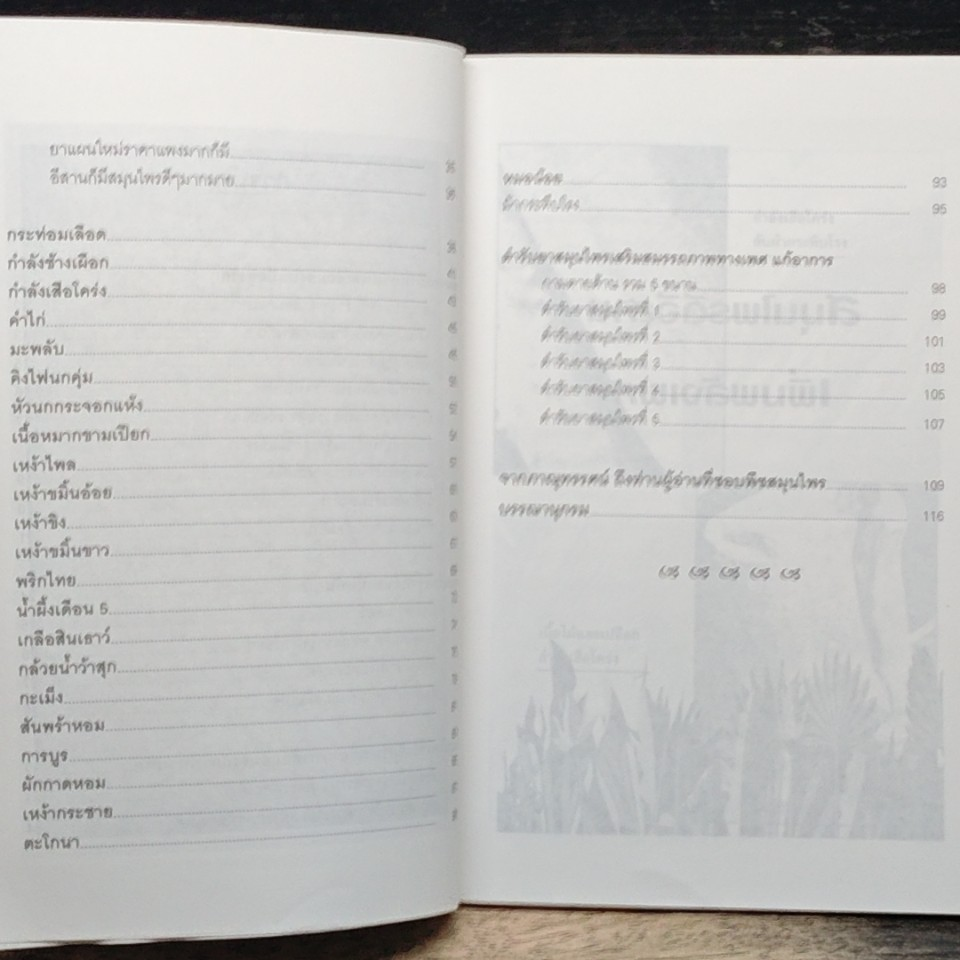 ยาแผนใหม่ราคาแพงมากก็มี
อีสานก็มีสมุนไพรดีๆมากมาย
กระท่อมเลือด
กำลังช้างเผือก
กำลังเสือโคร่ง
คำไก่
มะพลับ
ดิงไฟนกคุ่ม
หัวนกกระจอกแห้ง
เนื้อหมากขามเปียก
เหง้าไพล
เหง้าขมิ้นอ้อย
เหง้าขิง
เหง้าขมิ้นขาว
พริกไทย
น้ำผึ้งเดือน 5
เกลือสินเธาว์
กล้วยน้ำว้าสุก
กะเม็ง
สันพร้าหอม
การบูร
ผักกาดหอม
เหง้ากระชาย
ตะโกนา
หมอน้อย 93
95
ตำรับยาสมุนไพรเสริมสมรรถภาพทางเพศ แก้อาการ
กามตายด้าน รวม 5 ขนาน 98
ตำรับยาสมุนไพรที่ 1 99
ตำรับยาสมุนไพรที่ 2 101
ตำรับยาสมุนไพรที่ 3 103
ตำรับยาสมุนไพรที่ 4 105
ตำรับยาสมุนไพรที่ 5 107
จากภาณุทรรศน์ ถึงท่านผู้อ่านที่ชอบพืชสมุนไพร 109
บรรณานุกรม 116